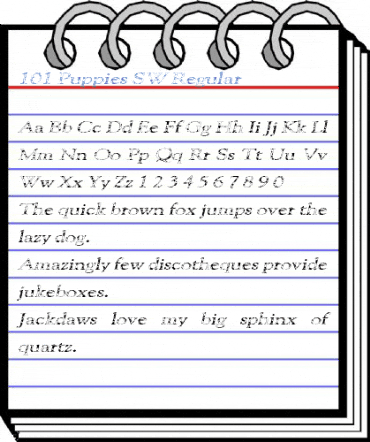 101 Puppies SW Regular
Aa Bb Cc Dd Ee Ff Gg Hh Ii Jj Kk Ll
Mm Nn Oo Pp Qq Rr Ss Tt Uu Vv
Ww Xx Yy Zz 1 2 3 4 5 6 7 8 9 0
The quick brown fox jumps over the
lazy dog.
Amazingly few discotheques provide
jukeboxes.
Jackdaws love my big sphinx of
quartz.